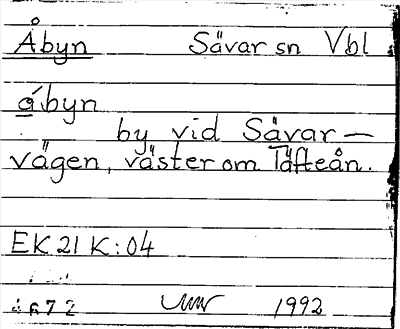 Åbyn Sävar sn Vbl
ǻbyn
by vid Sävar—
vägen, väster om Täfteån.
EK 21 K:04
1672 1992